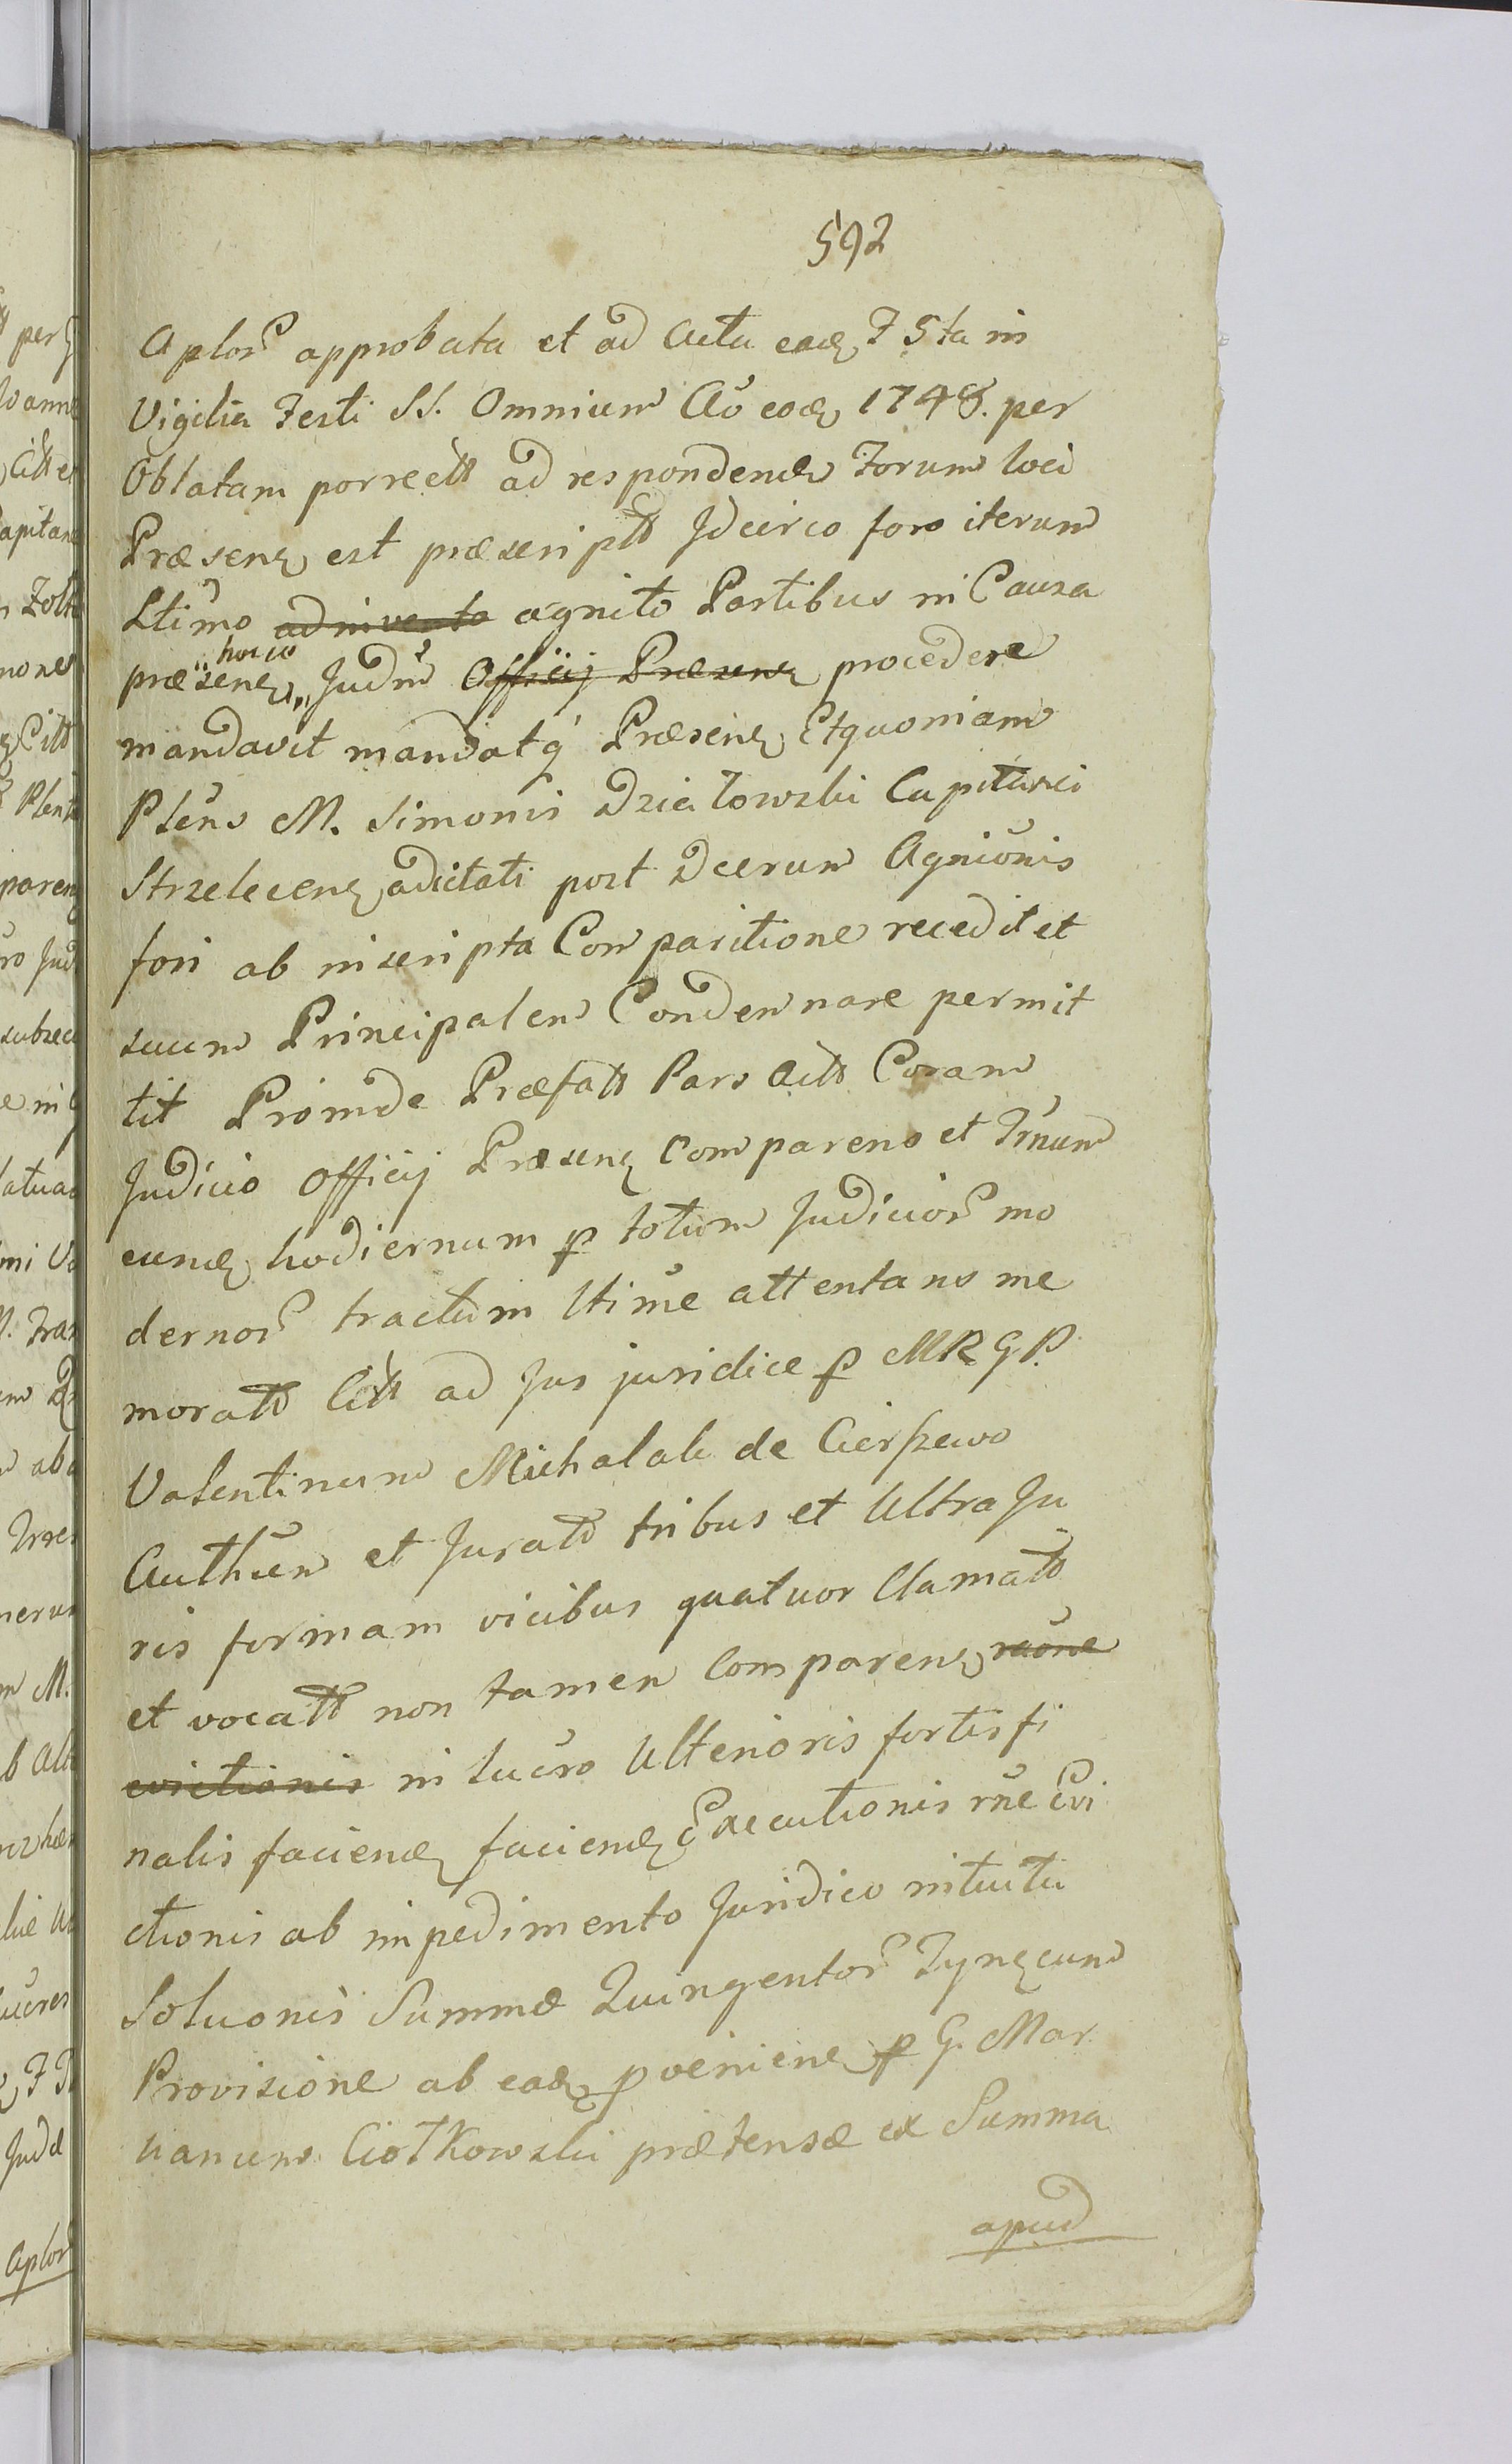 592
Aplor approbata et ad Acta eadę F 5ta in
Vigilia Festi SS. Omnium Ao eodę 1748. per
Oblatam porrectt ad respondendu Forum loci
Præsenę est præscriptt Idcirco foro iterum
Ltimo adinvento agnito Partibus in Causa
præsenę hocce Judm Officij Præsenę procedere
mandavit mandatq Præsenę Etquoniam
Plens M. Simonis Działowski Capitanei
Strzelecenę adictati post Dcerum Agnionis
fori ab inscripta Comparitione recedit et
suum Principalem Condemnare permit
tit Proinde Præfatt Pars Actt Coram
Judicio Officij Præsenę Comparens et Trnum
eundę hodiernum p totum Judicior mo
dernor tractum ltime attentans me
moratt Citt ad Jus juridice p MRGP.
Valentinum Michalak de Cierszewo
Authen et Juratt tribus et Ultra Ju
ris formam vicibus quatuor Clamatt
et vocatt non tamen Comparenę raone
evictionis in lucro Ulterioris fortis fi
nalis faciendę faciendę Executionis rne Evi
ctionis ab impedimento Juridico intuitu
Soluonis Summæ Quingentor Tynę cum
Provisione ab eadę pvenienę p G. Mar
uanum Ciołkowski prætensæ ex Summa
apud